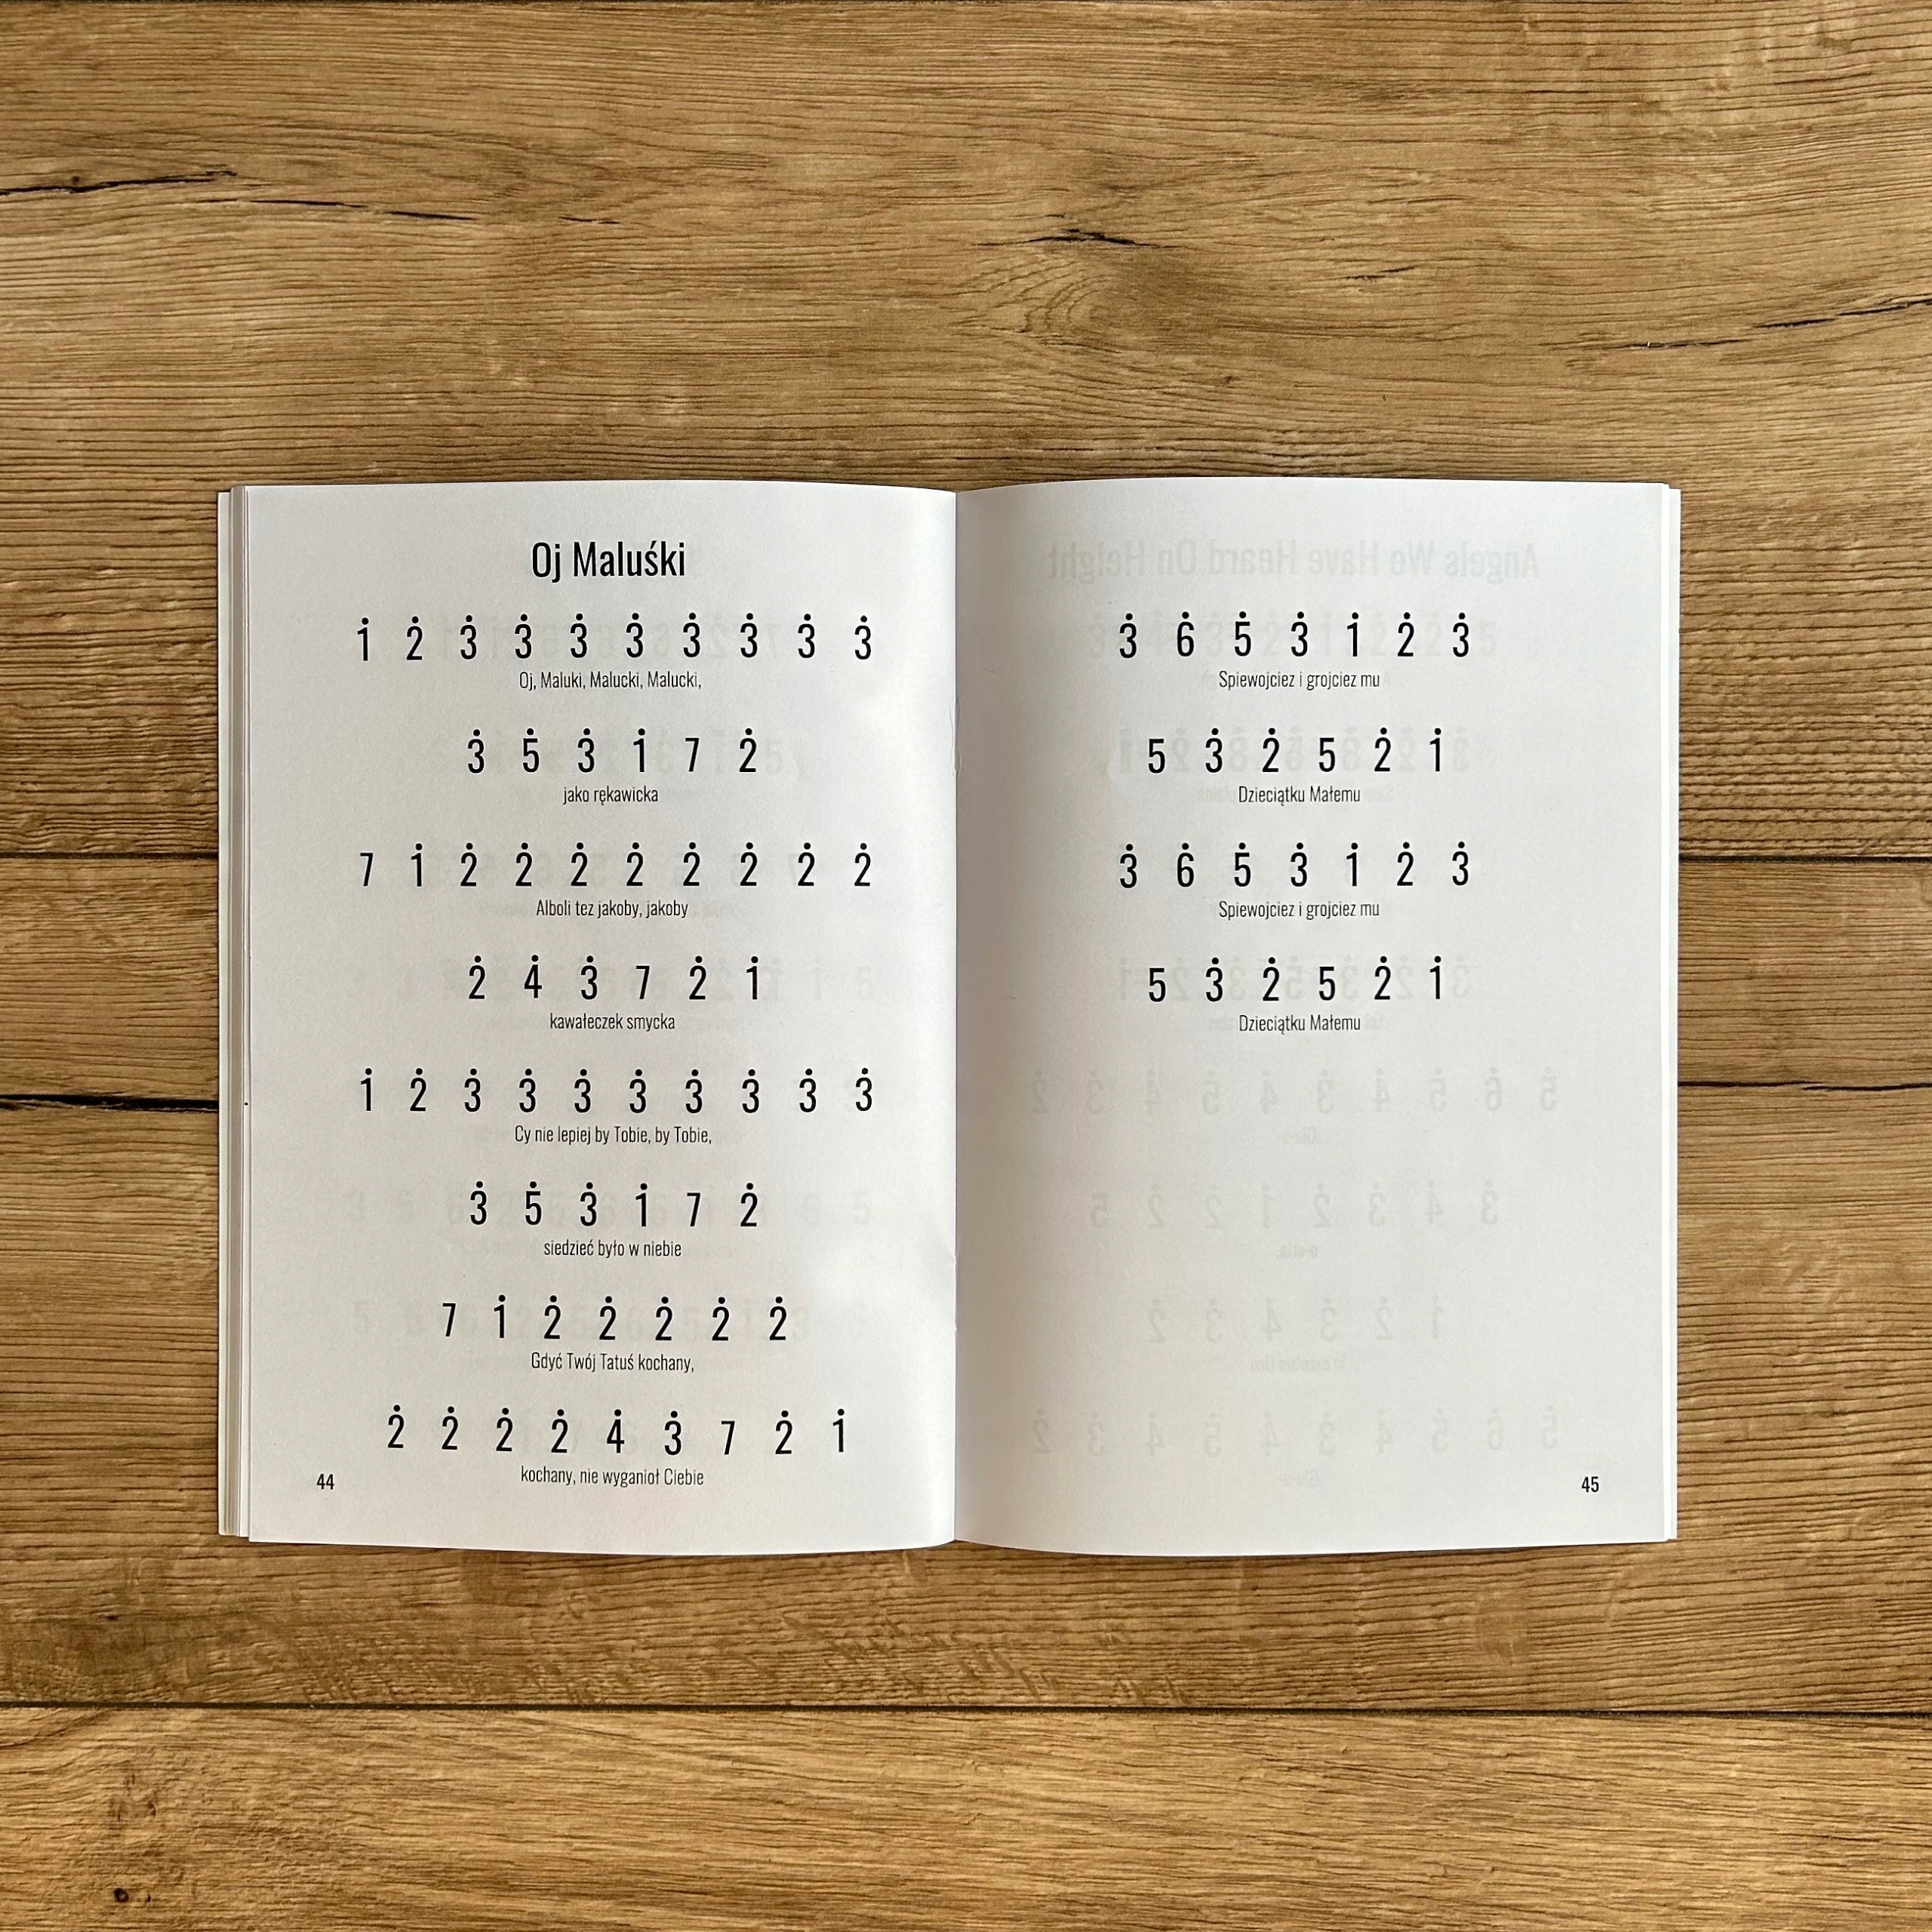 Oj Maluśki
1̇ 2̇ 3̇ 3̇ 3̇ 3̇ 3̇ 3̇ 3̇ 3̇
Oj, Maluki, Malucki, Malucki,
3̇ 5̇ 3̇ 1̇ 7 2̇
jako rękawicka
7 1̇ 2̇ 2̇ 2̇ 2̇ 2̇ 2̇ 2̇ 2̇
Alboli tez jakoby, jakoby
2̇ 4̇ 3̇ 7 2̇ 1̇
kawałeczek smycka
1̇ 2̇ 3̇ 3̇ 3̇ 3̇ 3̇ 3̇ 3̇ 3̇
Cy nie lepiej by Tobie, by Tobie,
3̇ 5̇ 3̇ 1̇ 7 2̇
siedzieć było w niebie
7 1̇ 2̇ 2̇ 2̇ 2̇ 2̇
Gdyć Twój Tatuś kochany,
2̇ 2̇ 2̇ 2̇ 4̇ 3̇ 7 2̇ 1̇
kochany, nie wyganioł Ciebie
44
3̇ 6̇ 5̇ 3̇ 1̇ 2̇ 3̇
Spiewojciez i grojciez mu
5 3̇ 2̇ 5 2̇ 1̇
Dzieciątku Małemu
3̇ 6̇ 5̇ 3̇ 1̇ 2̇ 3̇
Spiewojciez i grojciez mu
5 3̇ 2̇ 5 2̇ 1̇
Dzieciątku Małemu
45